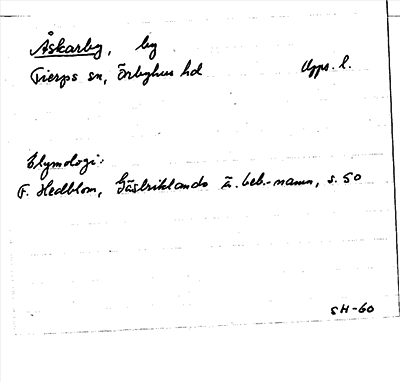 Åskarby, by
Tierps sn, Örbyhus hd Upps. l.
Etymologi:
F. Hedblom, Gästriklands ä. beb.-namn, s. 50
SH-60